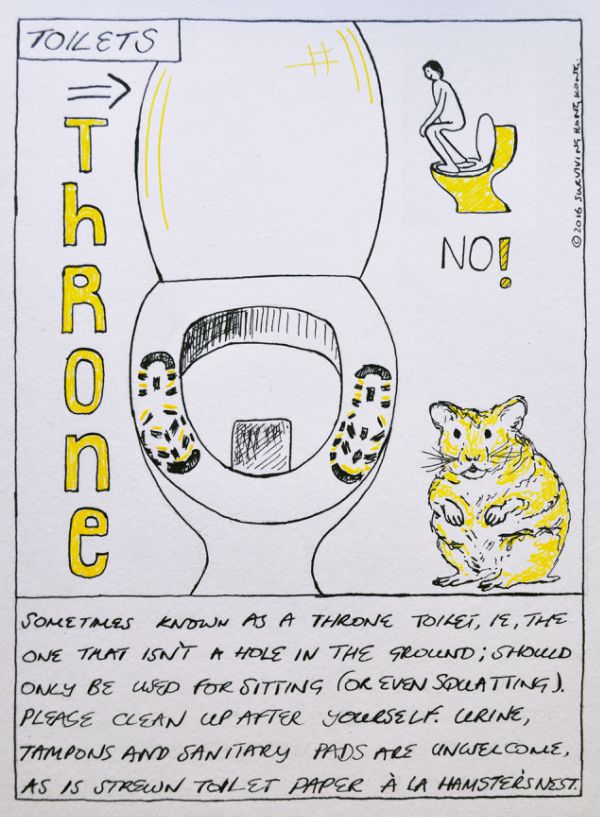 TOILETS
ThRone
© 2016 SURVIVING HONG KONG.
NO!
SOMETIMES KNOWN AS A THRONE TOILET, IE, THE
ONE THAT ISN'T A HOLE IN THE GROUND; SHOULD
ONLY BE USED FOR SITTING (OR EVEN SQUATTING).
PLEASE CLEAN UP AFTER YOURSELF. URINE,
TAMPONS AND SANITARY PADS ARE UNWELCOME,
AS IS STREWN TOILET PAPER À LA HAMSTER'S NEST.